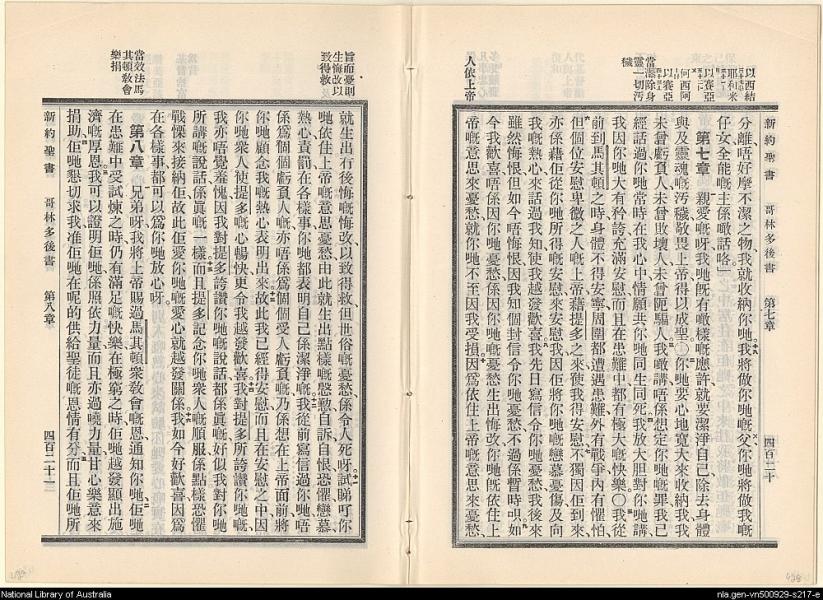 新約聖書 哥林多後書 第七章 四百二十
以西結
耶利米
以賽亞
何西阿
以賽亞
當潔除身
靈一切汚
穢
人依上帝
分離唔好摩不潔之物我就收納你哋我將做你哋嘅父你哋將做我嘅
仔女全能嘅主係噉話咯
第七章 親愛嘅呀我哋旣有噉樣嘅應許就要潔淨自己除去身體
與及靈魂嘅汚穢敬畏上帝得以成聖〇你哋要心地寬大來收納我我
未曾虧負人未曾敗壞人未曾阨騙人我噉講唔係想定你哋嘅罪我已
經話過你哋常時在我心中情願共你哋同生同死我放大胆對你哋講
我因你哋大有矜誇充滿安慰而且在患難中都有極大嘅快樂〇我從
前到馬其頓之時身體不得安寧周圍都遭遇患難外有戰爭內有懼怕
但個位安慰卑微之人嘅上帝藉提多之來使我得安慰不獨因佢到來
亦係藉佢從你哋所得嘅安慰來安慰我因佢將你哋嘅戀慕憂傷及向
我嘅熱心來話過我知使我越發歡喜我先日寫信令你哋憂愁我後來
雖然悔恨但如今唔悔恨因我知個封信令你哋憂愁不過係暫時呮如
今我歡喜唔係因你哋憂愁係因你哋憂愁生出悔改你哋旣依住上
帝嘅意思來憂愁就你哋不至因我受損因爲依住上帝嘅意思來憂愁
旨而憂則
生悔改以
致得救
當效法馬
其頓敎會
樂捐
就生出冇後悔嘅悔改以致得救但世俗嘅憂愁係令人死呀試睇吓你
哋依住上帝嘅意思憂愁由此就生出點樣嘅慇懃自訴自恨恐懼戀慕
熱心責罰在各樣事你哋都表明自己係潔淨嘅我從前寫信過你哋唔
係爲個個虧負人嘅亦唔係爲個個受人虧負嘅乃係想在上帝面前將
你哋顧念我嘅熱心表明出來故此我已經得安慰而且在安慰之中因
你哋衆人使提多嘅心暢快更令我越發歡喜我對提多所誇讚你哋嘅
我亦唔覺羞愧因我對提多誇讚你哋嘅說話都係眞嘅好似我對你哋
所講嘅說話係眞嘅一樣而且提多記念你哋衆人嘅順服係點樣恐懼
戰慄來接納佢故此佢愛你哋嘅愛心就越發關係我如今好歡喜因爲
在各樣事都可以爲你哋放心呀
第八章 兄弟呀我將上帝賜過馬其頓衆敎會嘅恩通知你哋佢哋
在患難中受試煉之時仍有滿足嘅快樂在極窮之時佢哋越發顯出施
濟嘅厚恩我可以證明佢哋係照依力量而且亦過嘵力量甘心樂意來
捐助佢哋懇切求我准佢哋在呢的供給聖徒嘅恩情有分而且佢哋所
新約聖書 哥林多後書 第八章 四百二十一
National Library of Australia
nla.gen-vn500929-s217-e